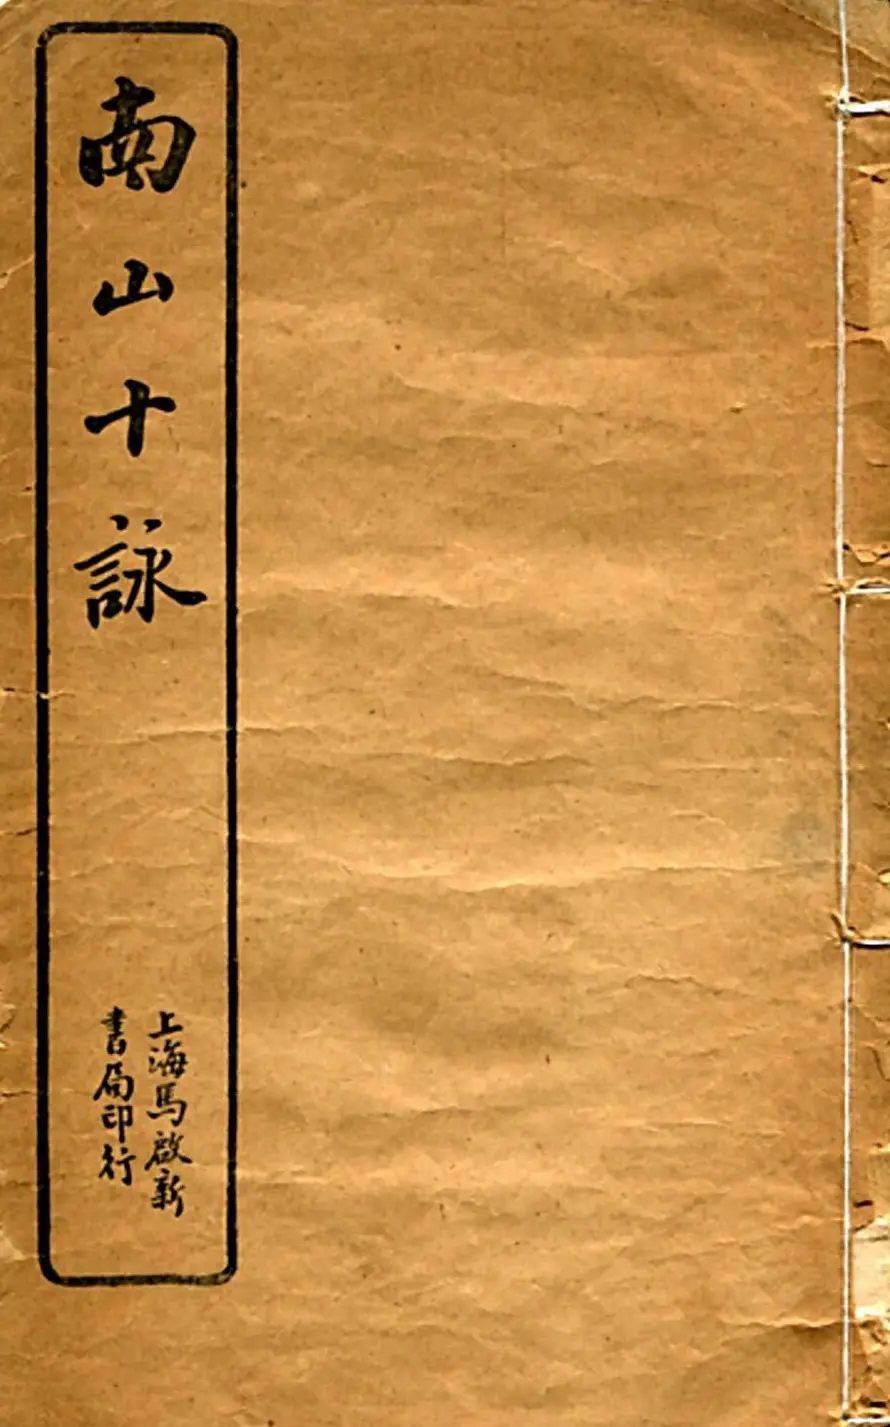 南山十詠
上海馬啟新
書局印行